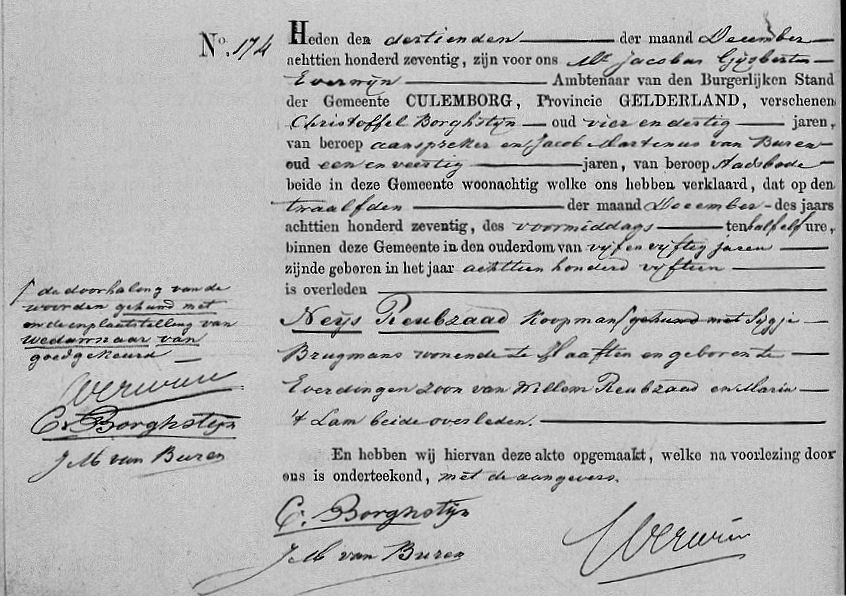 No. 174
Heden den dertienden der maand December
achttien honderd zeventig, zijn voor ons Mr Jacobus Gijsbertus
Everwijn Ambtenaar van den Burgerlijken Stand
der Gemeente CULEMBORG, Provincie GELDERLAND, verschenen
Christoffel Borghstijn oud vier en dertig jaren,
van beroep aanspreker en Jacob Martenus van Buren
oud een en veertig jaren, van beroep stadsbode
beide in deze Gemeente woonachtig welke ons hebben verklaard, dat op den
twaalfden der maand December des jaars
achttien honderd zeventig, des voormiddags ten half elf ure,
binnen deze Gemeente in den ouderdom van vijf en vijftig jaren
zijnde geboren in het jaar achttien honderd vijftien
is overleden
Neijs Reubzaad Koopman gehuwd met Sijgje
Brugmans wonende te Haaften en geboren te
Everdingen zoon van Willem Reubzaad en Maria
't Lam beide overleden.
En hebben wij hiervan deze akte opgemaakt, welke na voorlezing door
ons is onderteekend, met de aangevers.
C. Borghstijn
J M van Buren
Everwijn
de doorhaling van de
woorden gehuwd met
en de inplaatstelling van
weduwnaar van
goedgekeurd
Everwijn
C. Borghstijn
J M van Buren